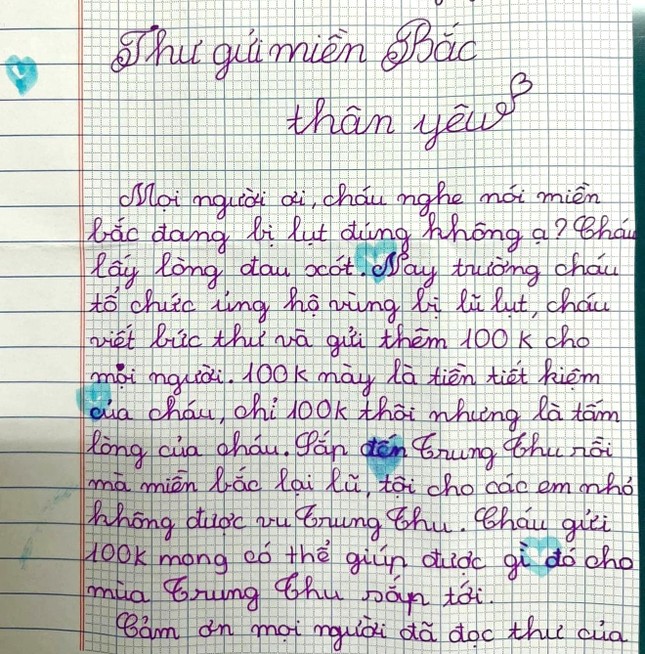 Thư gửi miền Bắc
thân yêu
Mọi người ơi, cháu nghe nói miền
bắc đang bị lụt đúng không ạ? Cháu
lấy lòng đau xót. Nay trường cháu
tổ chức ủng hộ vùng bị lũ lụt, cháu
viết bức thư và gửi thêm 100k cho
mọi người. 100k này là tiền tiết kiệm
của cháu, chỉ 100k thôi nhưng là tấm
lòng của cháu. Sắp đến Trung Thu rồi
mà miền bắc lại lũ, tội cho các em nhỏ
không được vu Trung Thu. Cháu gửi
100k mong có thể giúp được gì đó cho
mùa Trung Thu sắp tới.
Cảm ơn mọi người đã đọc thư của